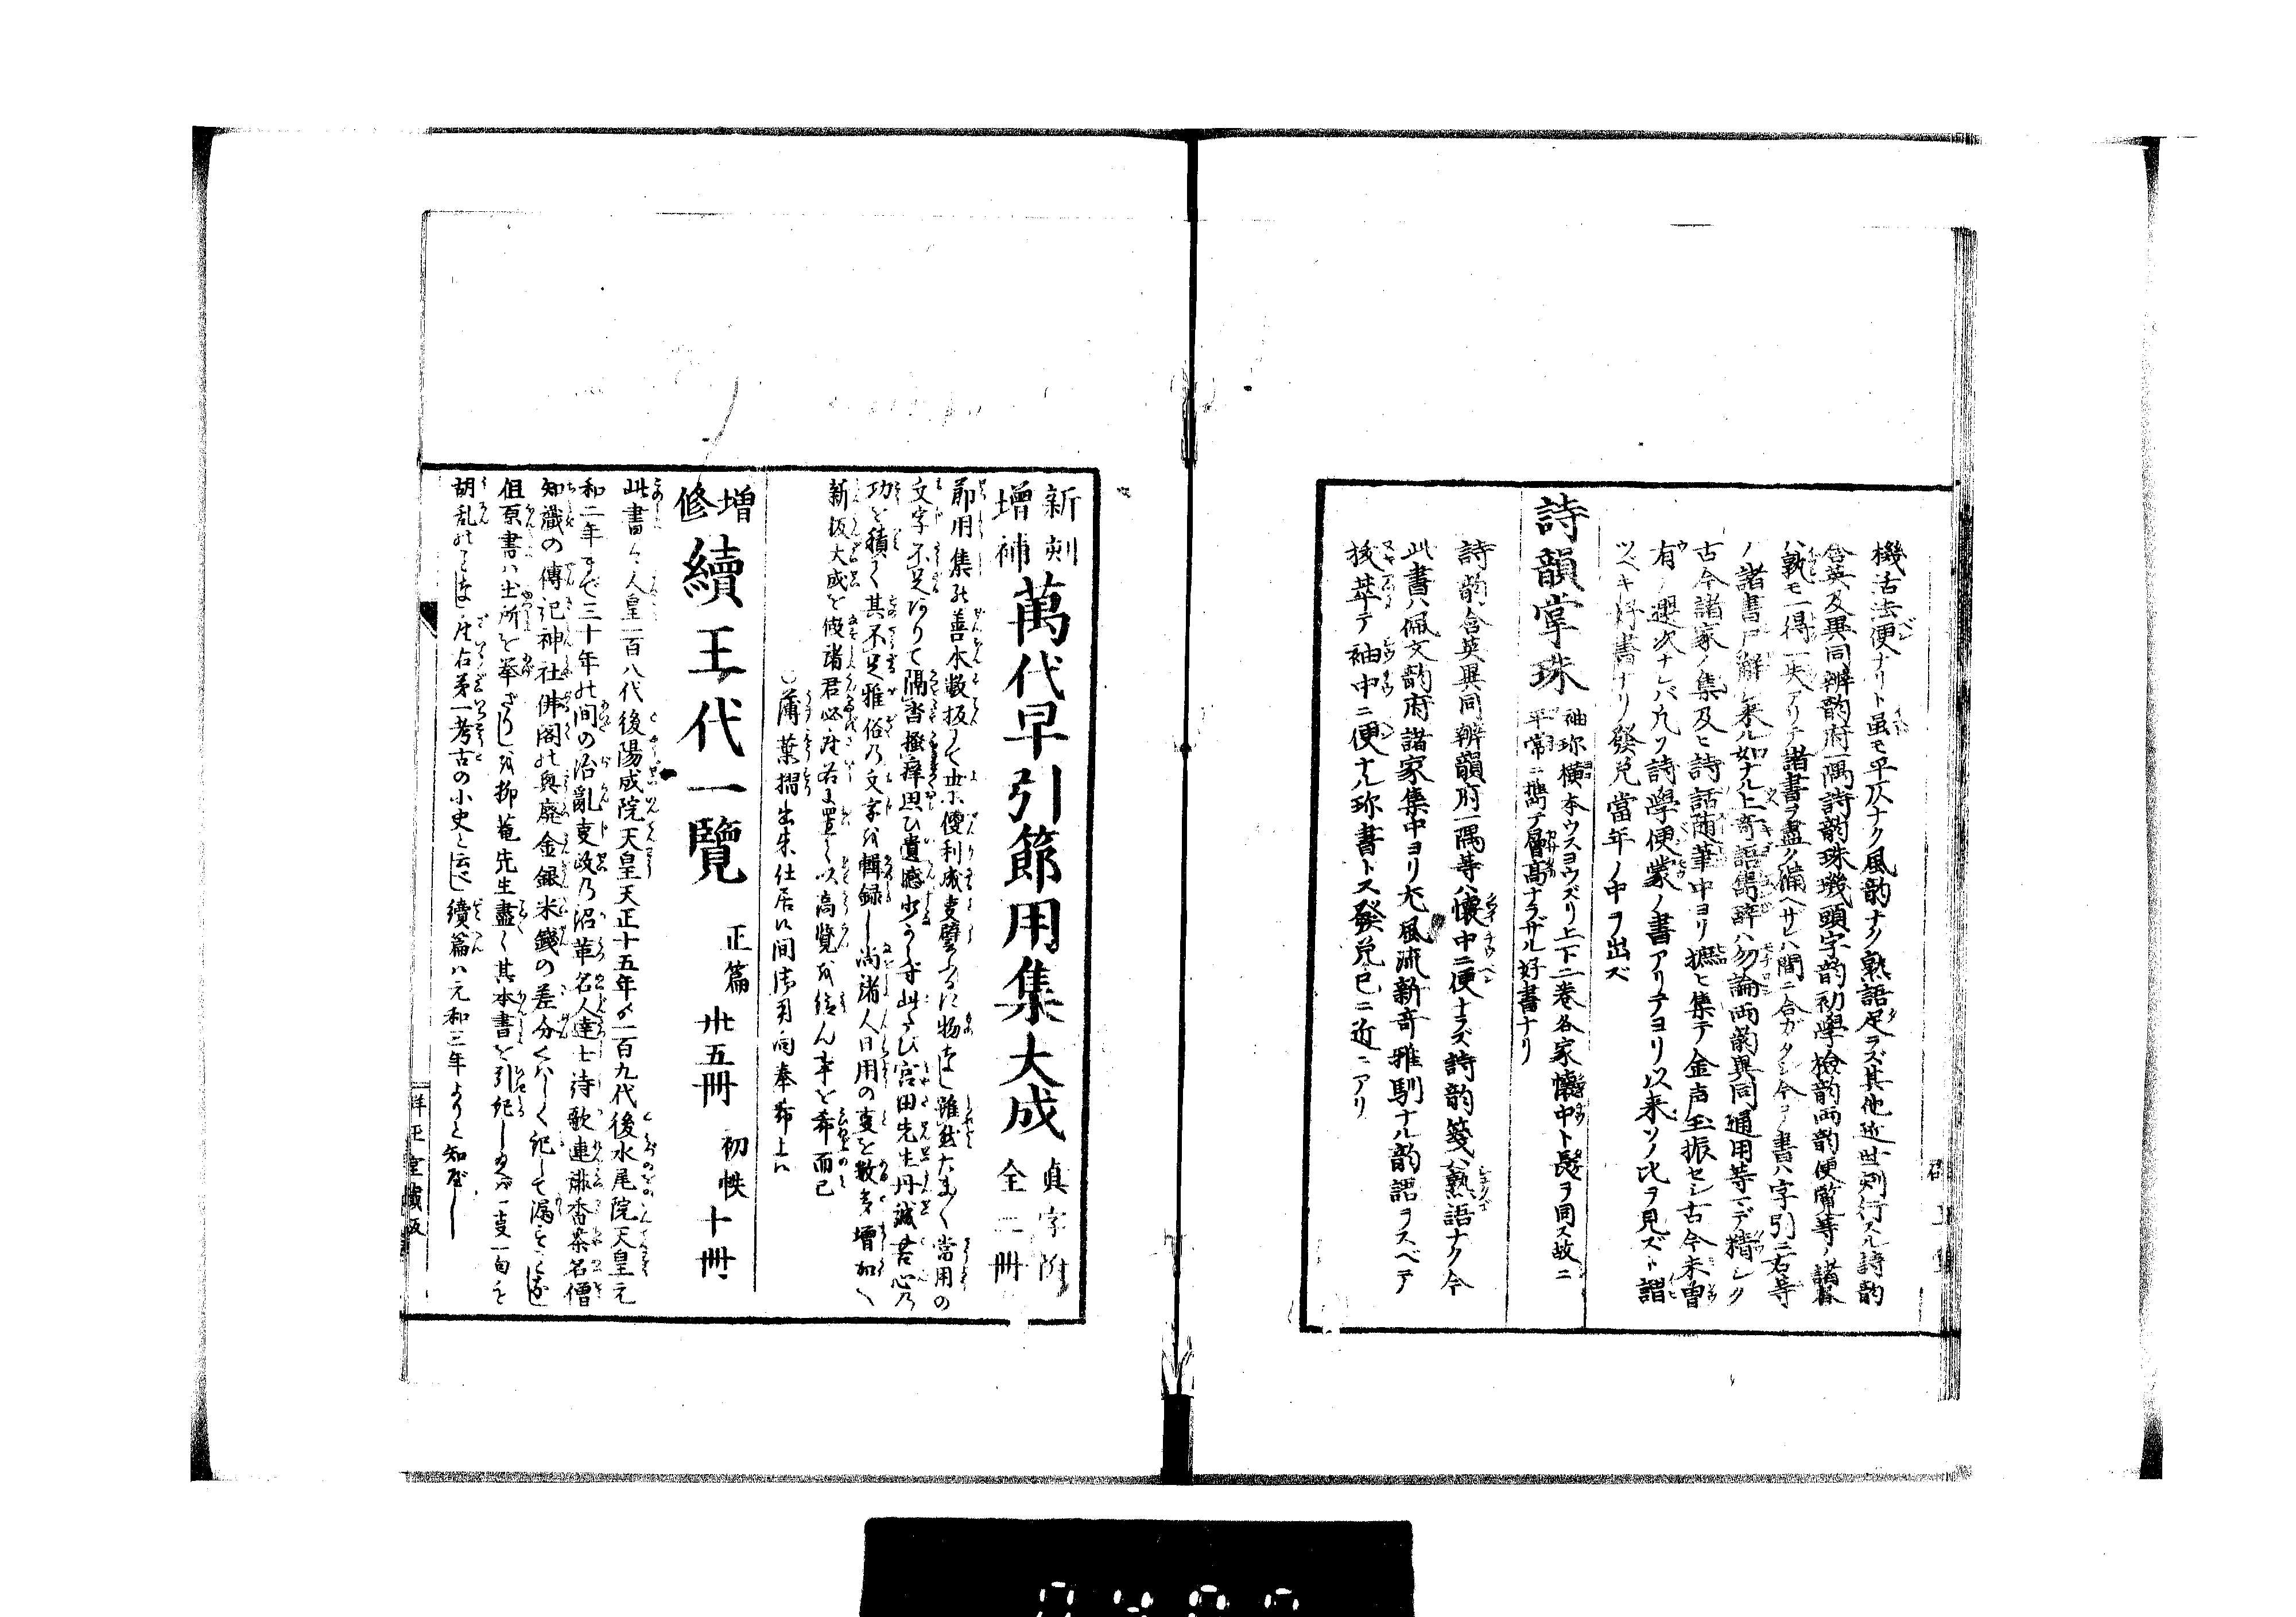 機活法便ナリト虽モ平仄ナク風韵ナク熟語足ラズ其他近世刻行スル詩韵
含英及異同辨韵府一隅詩韵珠璣頭字韵初學檢韵両韵便覧等ノ諸書
ハ孰モ一得一失アリテ諸書ヲ盡ク備ヘザレバ間ニ合ガタシ今コノ書ハ字引ニ右等
ノ諸書ヲ解シ来ル如ナル上奇語雋辞ハ勿論両韵異同通用等マデ精シク
古今諸家ノ集及ヒ詩話随筆中ヨリ摭ヒ集テ金声玉振セシ古今未曽
有ノ選次ナレバ凡ソ詩學便蒙ノ書アリテヨリ以来ソノ比ヲ見ズト謂
ツベキ好書ナリ發兌當年ノ中ヲ出ズ
詩韻掌珠
袖珍横本ウスヨウズリ上下二巻各家懐中ト長ヲ同ス故ニ
平常ニ携テ層高ナラザル好書ナリ
詩韵含英異同辨韻府一隅等ハ懐中ニ便ナラズ詩韵箋ハ熟語ナク今
此書ハ佩文韵府諸家集中ヨリ尤風流新奇雅馴ナル韵語ヲスベテ
抜萃テ袖中ニ便ナル珍書トス發兌已ニ近ニアリ
新刻
增補
萬代早引節用集大成
真字附
全二冊
節用集の善本數板にて世に便利成事譬るに物なし雖然たまたま當用の
文字不足ありて隔沓搔痒思ひ遺憾少からず此たび宮田先生丹誠苦心乃
功を積て其不足雅俗乃文字を輯録し尚諸人日用の事を數多增加へ
新板大成と候諸君必座右に置て以高覧を給ん事を希而已
薄葉摺出来仕居候間御用向奉希上候
增修
續王代一覽
正篇 卅五冊
初帙 十冊
此書ハ人皇一百八代後陽成院天皇天正十五年より一百九代後水尾院天皇元
和二年まで三十年の間の治亂事跡乃沿革名人達士詩歌連誹香茶名僧
知識の傳記神社佛閣の興廢金銀米錢の差分くハしく記して漏すことなし
但原書ハ出所を挙ざりしを柳菴先生盡く其本書を引記し只一事一句を
胡乱のことなし座右第一考古の小史と云べし續篇ハ元和三年よりと知べし
群玉堂藏版